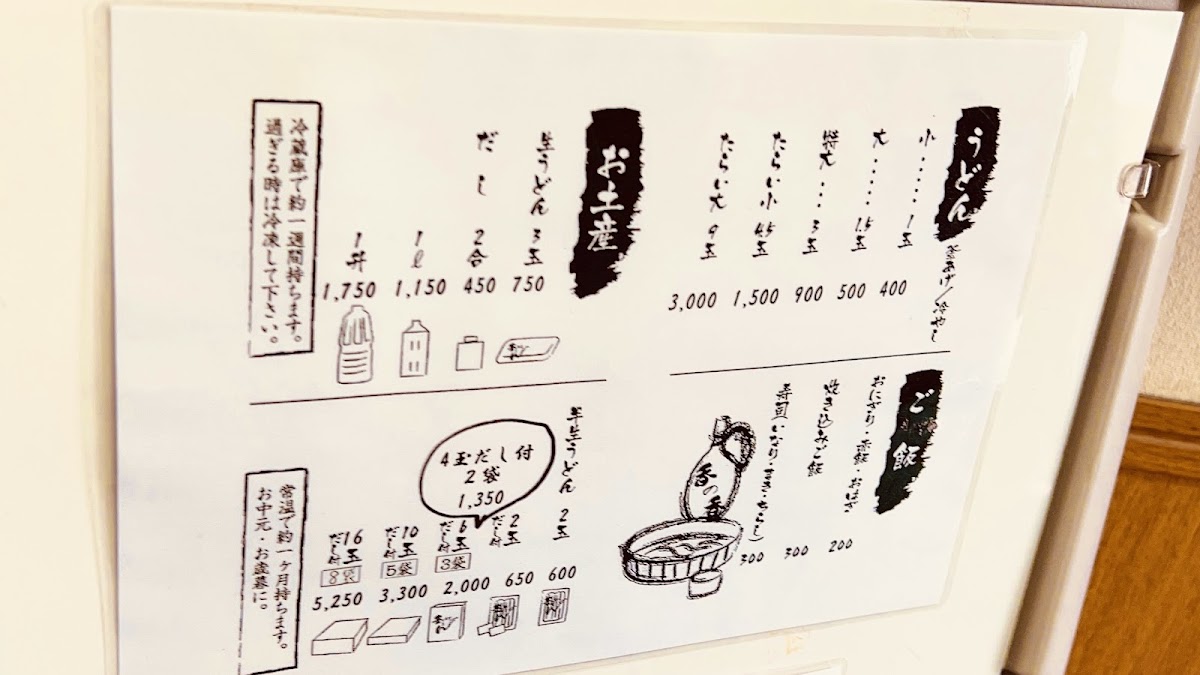 うどん
釜あげ/冷やし
小・・・・・ 1玉 400
大・・・・・ 1.5玉 500
特大・・・ 3玉 900
たらい小 4.5玉 1,500
たらい大 9玉 3,000
ご飯
おにぎり・赤飯・おはぎ 200
炊き込みご飯 300
寿司(いなり・まき・ちらし) 300
香の香
お土産
生うどん 3玉 750
だし 2合 450
1ℓ 1,150
1升 1,750
冷蔵庫で約一週間持ちます。
過ぎる時は冷凍して下さい。
半生うどん 2玉 600
2玉 だし付 650
6玉 だし付 3袋 2,000
10玉 だし付 5袋 3,300
16玉 だし付 8袋 5,250
4玉だし付
2袋
1,350
常温で約一ヶ月持ちます。
お中元・お歳暮に。